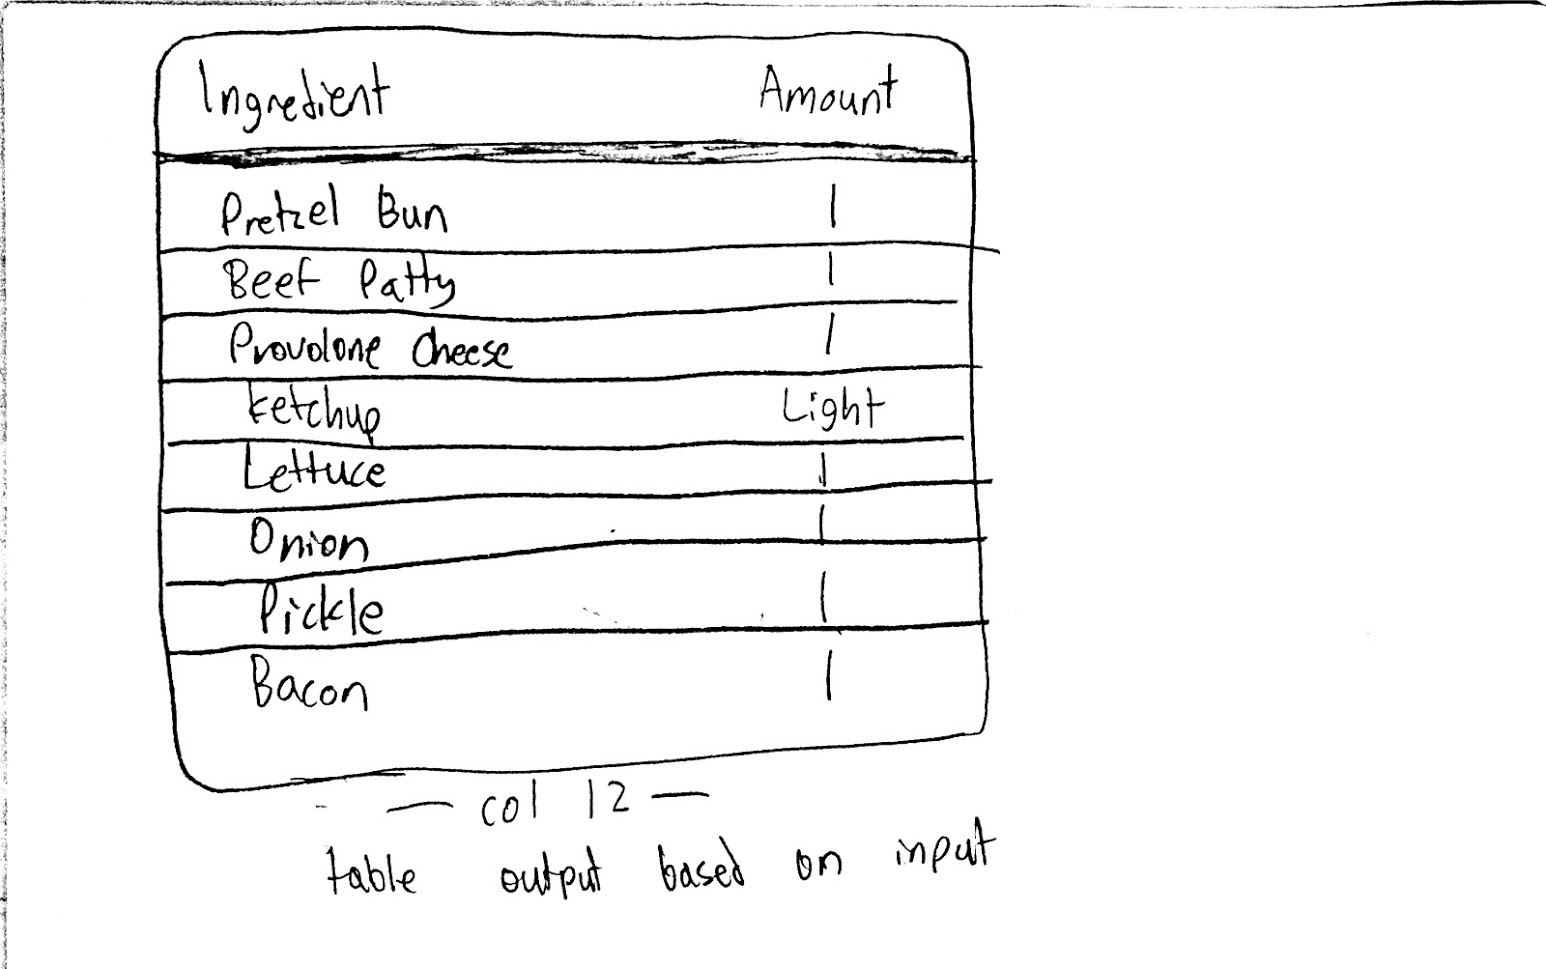 Ingredient Amount
Pretzel Bun 1
Beef Patty 1
Provolone Cheese 1
ketchup Light
Lettuce 1
Onion 1
Pickle 1
Bacon 1
— col 12 —
table output based on input